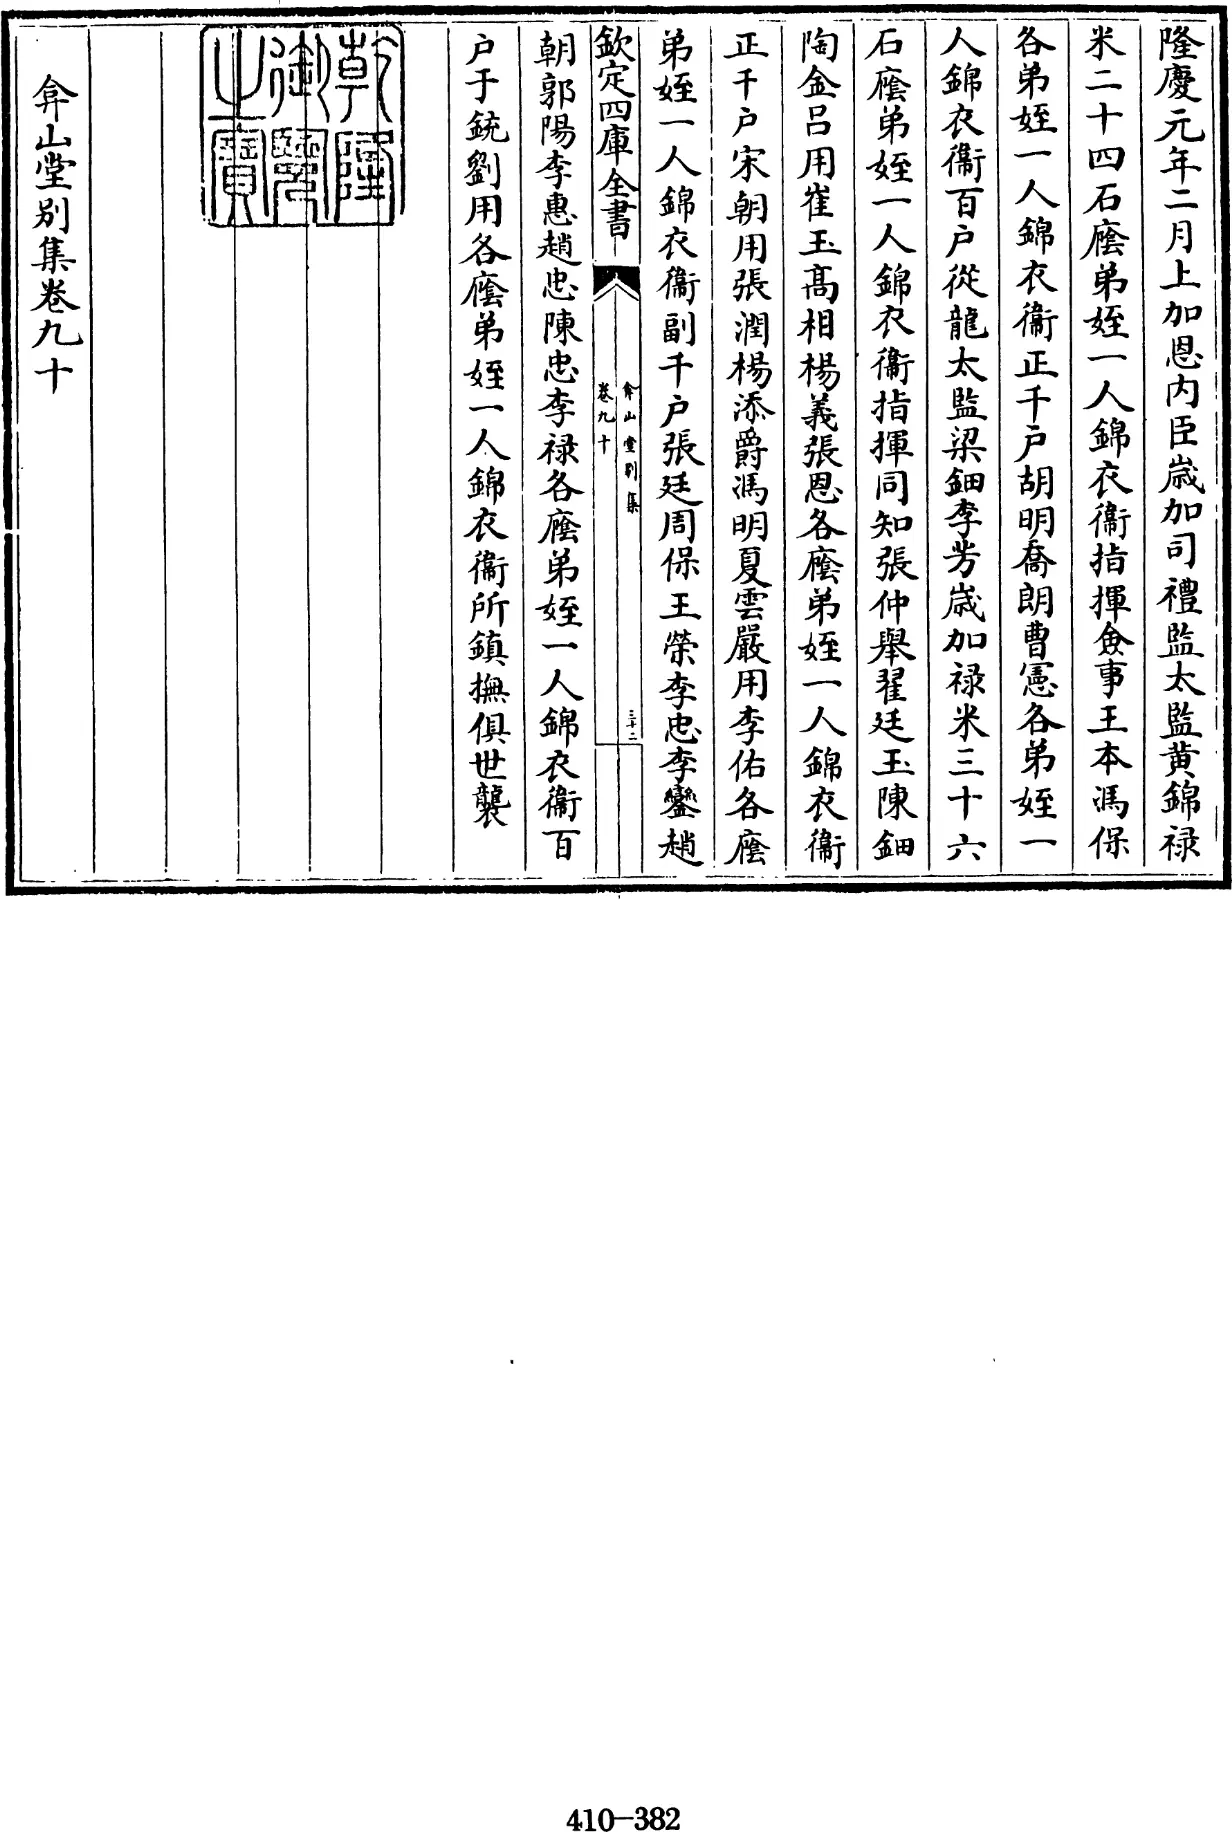 隆慶元年二月上加恩内臣歳加司禮監太監黄錦禄
米二十四石廕弟姪一人錦衣衞指揮僉事王本馮保
各弟姪一人錦衣衞正千户胡明喬朗曹憲各弟姪一
人錦衣衞百户從龍太監梁鈿李芳歳加禄米三十六
石廕弟姪一人錦衣衞指揮同知張仲舉翟廷玉陳鈿
陶金吕用崔玉髙相楊義張恩各廕弟姪一人錦衣衞
正千户宋朝用張潤楊添爵馮明夏雲嚴用李佑各廕
弟姪一人錦衣衞副千户張廷周保王榮李忠李鑾趙
欽定四庫全書
弇山堂别集
卷九十
三十二
朝郭陽李惠趙忠陳忠李禄各廕弟姪一人錦衣衞百
户于銃劉用各廕弟姪一人錦衣衞所鎮撫俱世襲
乾隆御覽之寶
弇山堂别集卷九十
410-382